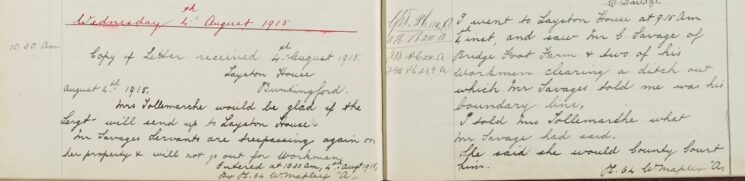 Wednesday 4th August 1915
10.30 am
Copy of Letter received 4th August 1915.
Layston House
Buntingford.
August 4th 1915.
Mrs Tollemarche would be glad if the
Sergt. will send up to Layston House.
Mr Savages Servants are trespassing again on
her property & will not go out for Workmen
Entered at 10.30 am, 4th Augt 1915,
By P.C. 64 W Mapley "A".
C. Savage
I went to Layston House at 9.15 am
4th inst, and saw Mr C. Savage of
Bridge Foot Farm & two of his
Workmen clearing a ditch out
which Mr Savages told me was his
boundary line,
I told Mrs Tollemarche what
Mr Savage had said.
She said she would County Court
him.
P.C. 64 W Mapley "A"